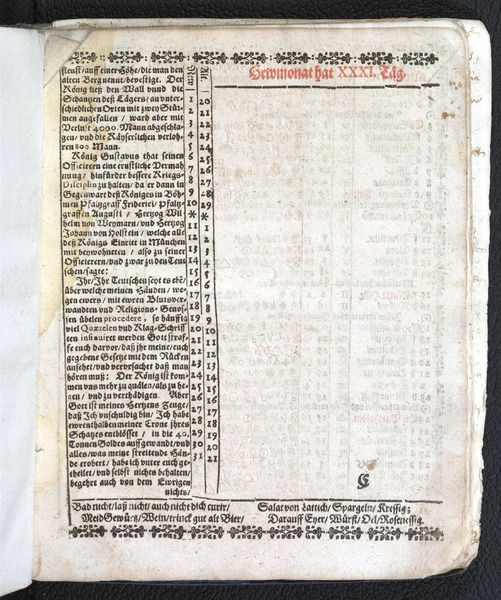 Hewmonat hat XXXI. Tag.
flenst / auff einer Höhe / die man den
alten Berg nennt / bevestigt. Der
König ließ den Wall vnnd die
Schantzen deß Lägers / an vnter-
schiedlichen Orten mit zwey Stür-
men angefallen / ward aber mit
Verlust 4000. Mann abgeschla-
gen / vnd die Käyserlichen verloh-
ren 800 Mann.
König Gustavus that seinen
Officirern eine ernstliche Vermah
nung / hinfürder bessere Kriegs-
Disciplin zu halten / da er dann in
Gegenwart deß Königes in Böh-
men Pfaltzgraff Friderici / Pfaltz-
graffen Augusti / Hertzog Wil-
helm von Weymarn / vnd Hertzog
Johann von Holstein / welche alle
deß Königs Einritt in München
mit beywohneten / also zu seiner
Officirern / vnd zwar zu den Teut
schen / sagte:
Ihr / Ihr Teutschen seyt es ebē /
über welche meinen Händen / we-
gen ewers / mit ewren Blutsver-
wandten vnd Religions-Genos-
sen übelen procedere, so häuffig
viel Querelen vnd Klag-Schrifft
ten insinuiret werden Gott straf-
fe euch darvor / daß ihr meine / euch
gegebene Gesetze mit dem Rücken
ansehet / vnd verursachet daß man
hören muß: Der König ist kom-
men vns mehr zu quälen / als zu he-
gen / vnd zu verthädigen. Aber
Gott ist meines Hertzens Zeuge /
daß Ich vnschuldig bin / Ich habe
ewenthalben meiner Crone ihres
Schatzes entblösset / in die 40.
Tonnen Goldes auffgewandt / vnd
alles / was meine streitende Hän-
de erobert / habt ich vnter euch ge-
theilet / vnd selbst nichts behalten /
begehre auch von dem Ewrigen
nichts /
1 20
2 21
3 22
4 23
5 24
6 25
7 26
8 27
9 28
10 29
* *
11 1
12 2
13 3
14 4
15 5
16 6
17 7
18 8
19 9
20 10
21 11
22 12
23 13
24 14
25 15
26 16
27 17
28 18
29 19
30 20
31 21
Bad nicht / laß nicht / auch nicht dich curir /
Meid Gewürtz / Wein / trinck gut alt Bier /
Salat von Lattich / Spargeln / Kressig:
Darauff Eyer / Würst / Oel / Rosenessig.